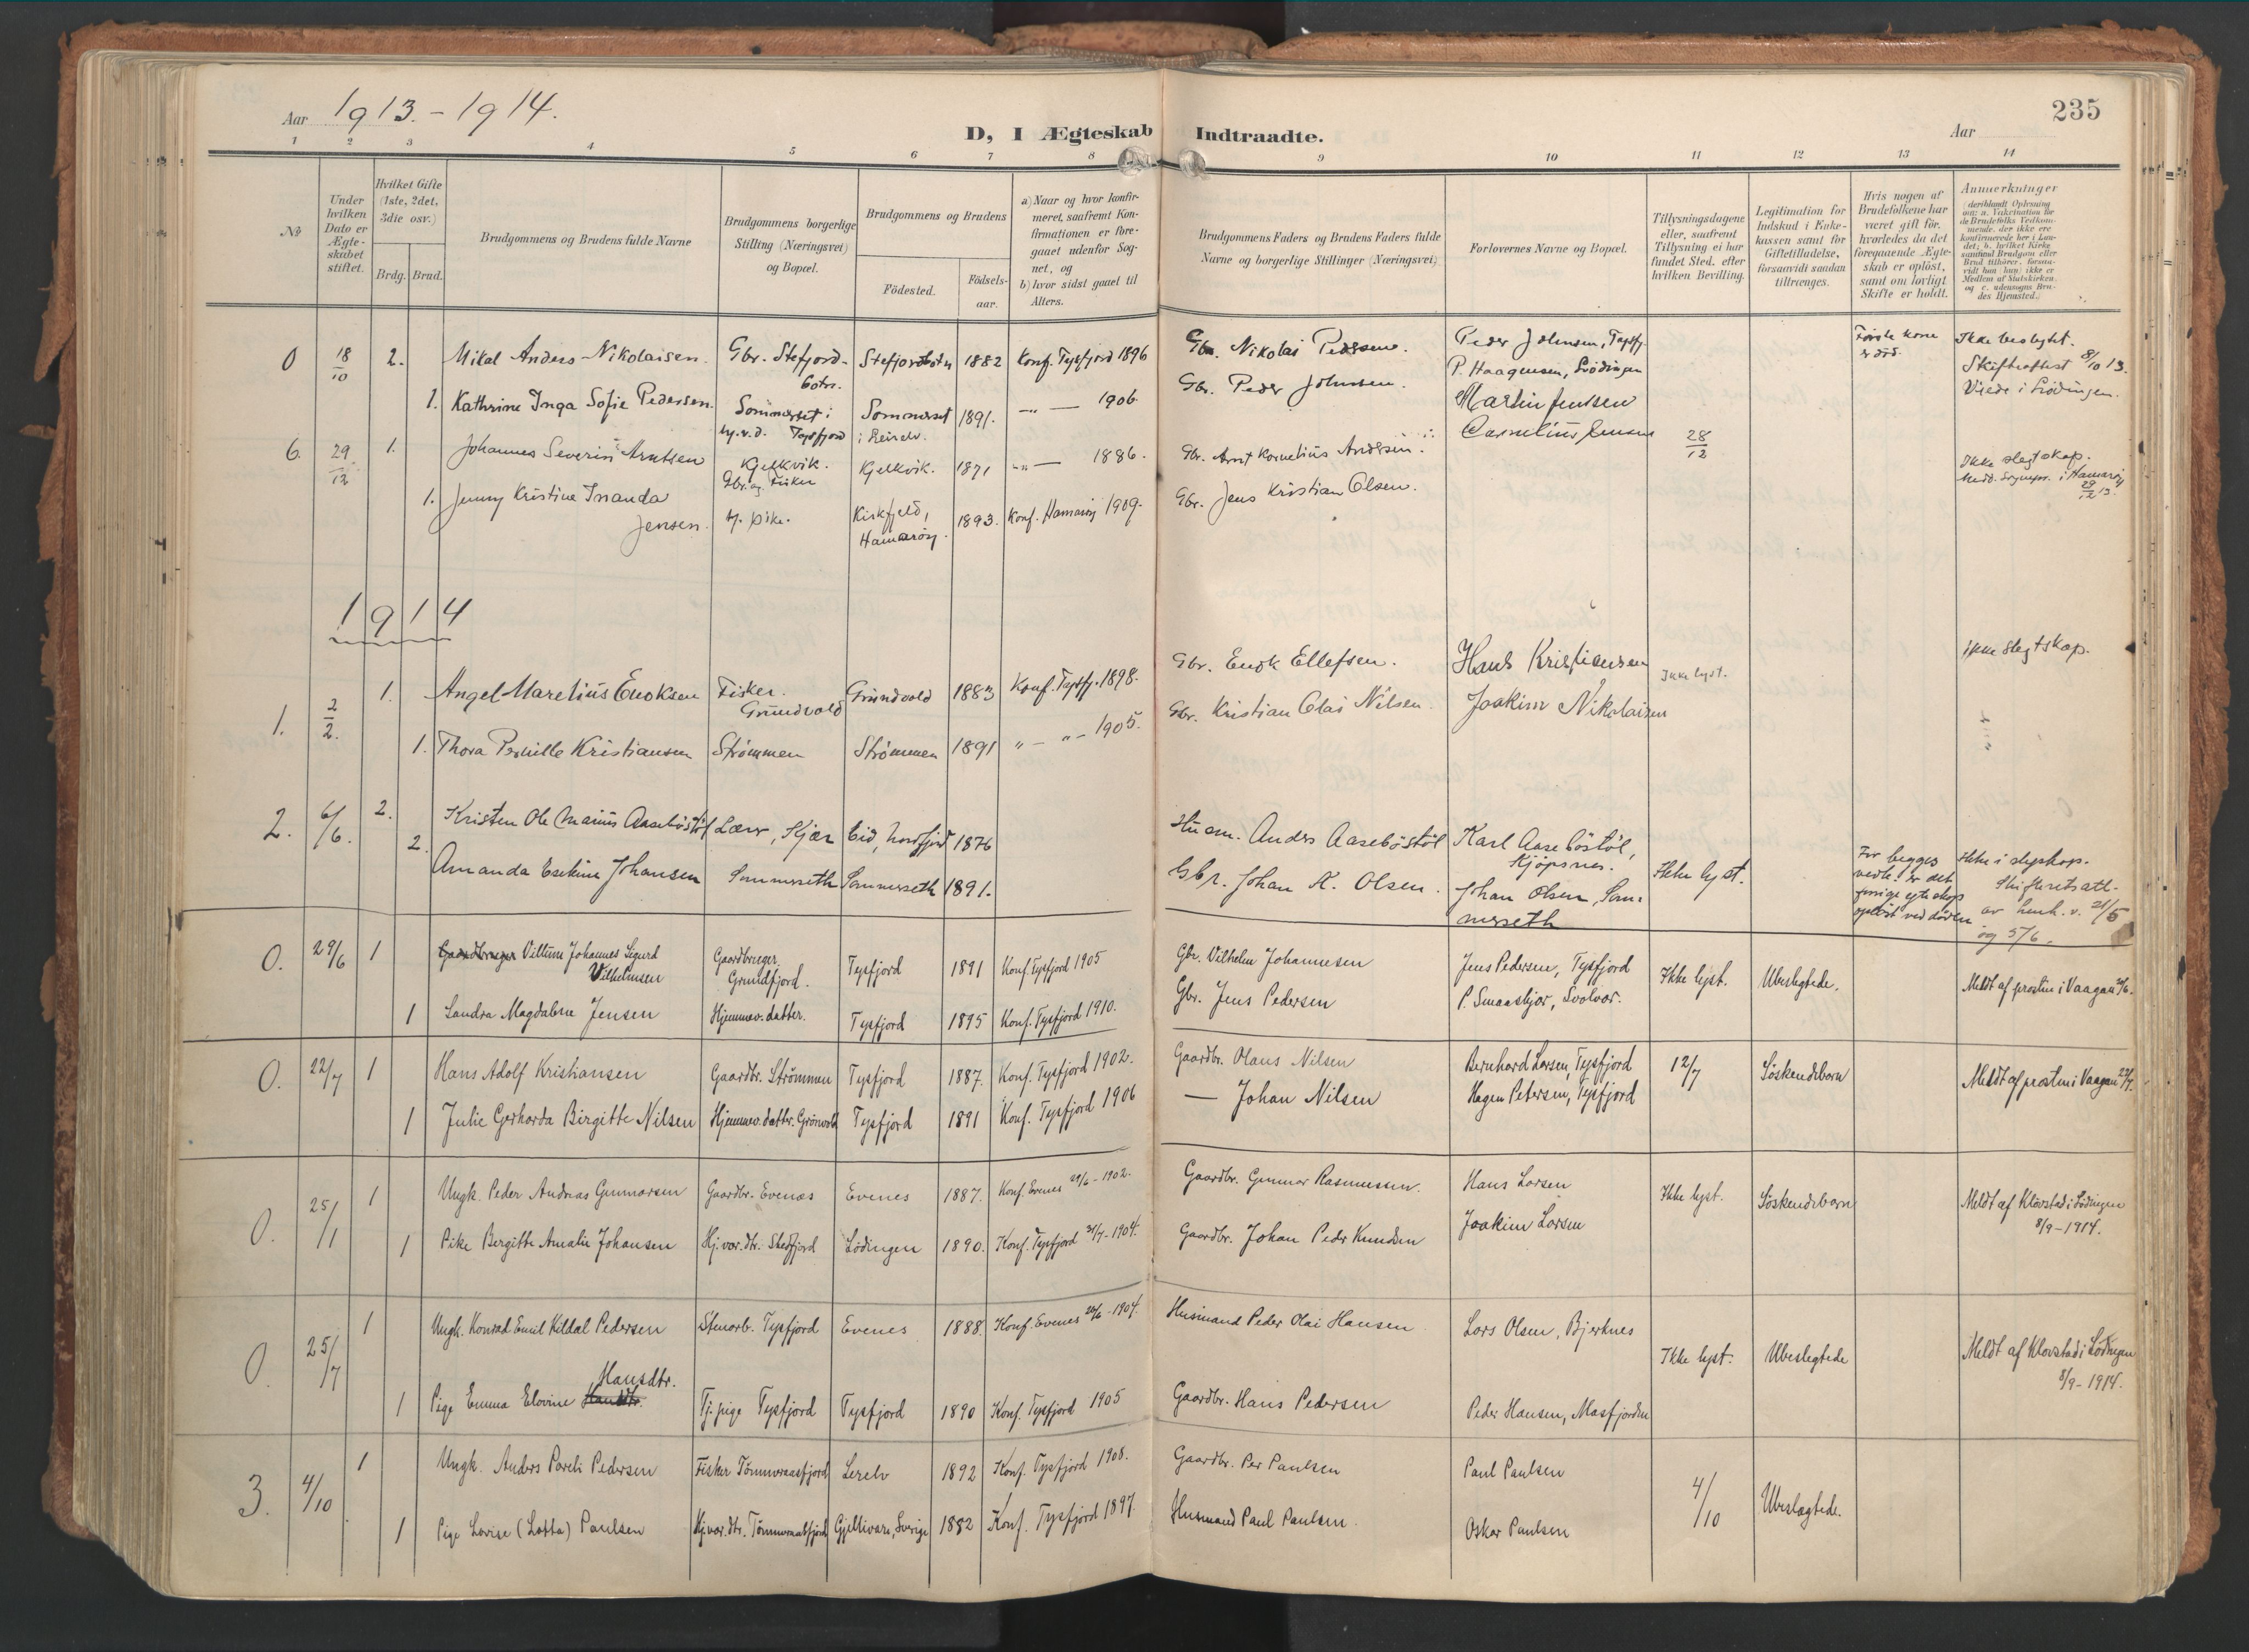 Aar 1913.-1914.
D, I Ægteskab Indtraadte.
Aar
235
1 2 3 4 5 6 7 8 9 10 11 12 13 14
No
Under hvilken Dato er Ægteskabet stiftet.
Hvilket Gifte (1ste, 2det, 3die osv.)
Brdg. Brud.
Brudgommens og Brudens fulde Navne
Brudgommens borgerlige Stilling (Næringsvei) og Bopæl.
Brudgommens og Brudens
Födested.
Födselsaar.
a) Naar og hvor konfirmeret, saafremt Konfirmationen er foregaaet udenfor Sognet, og
b) hvor sidst gaaet til Alters.
Brudgommens Faders og Brudens Faders fulde Navne og borgerlige Stillinger (Næringsvei)
Forlovernes Navne og Bopæl.
Tillysningsdagene eller, saafremt Tillysning ei har fundet Sted, efter hvilken Bevilling.
Legitimation for Indskud i Enkekassen samt for Giftetilladelse, forsaavidt saadan tiltrænges.
Hvis nogen af Brudefolkene har været gift för, hvorledes da det foregaaende Ægteskab er oplöst, samt om lovligt Skifte er holdt.
Anmerkninger
(deriblandt Oplysning om: a. Vakcination for de Brudefolks Vedkommende, der ikke ere konfirmerede her i Landet; b. hvilket Kirkesamfund Brudgom eller Brud tilhörer, forsaavidt han (hun) ikke er Medlem af Statskirken, og c. udensogns Brudes Hjemsted.)
0 18/10 2. Mikal Anders Nikolaisen. Gbr. Stefjordbotn. Stefjordbotn 1882 Konf. Tysfjord 1896 Gbr. Nikolai Pedersen. Peder Johnsen, Tysfj. Første kone er död. Ikke beslegtet.
P. Haagensen, Lödingen Skifteattest 8/10 13.
1. Kathrine Inga Sofie Pedersen. Sommerset i Tysfjord Sommerset 1891. -"- 1906. Gbr. Peder Johnsen. Viede i Lödingen.
Martin Jensen
6. 29/12 1. Johannes Severin Arntsen Kjelkvik. Gbr. og Fisker Kjelkvik. 1871 -"- 1886. Gbr. Arnt Kornelius Andersen. Cornelius Jensen 28/12 Ikke slegtskap.
1. Jenny Kristine Inanda Jensen. tj. pike. Kirkfjeld, Hamarøy. 1893. Konf. Hamarøy 1909. Gbr. Jens Kristian Olsen. i Hamarøy 29/12 13.
1914
1. 2/2. 1. Angel Marelius Enoksen Fisker. Grundvold Grundvold 1883 Konf. Tysfj. 1898. Gbr. Enok Ellefsen. Hans Kristiansen Ikke lyst. ikke slegtskap.
1. Thora Pernille Kristiansen Strømmen Strømmen 1891 "-"- 1905. Gbr. Kristian Olai Nilsen. Joakim Nikolaisen
2. 6/6. 2. Kristen Ole Marius Aasebøstøl Lærer, Kjær Eid, Nordfjord 1876 Husm. Anders Aasebøstøl Karl Aasebøstøl, Kjøpsnes. Ikke lyst. For begges vedk. er det forrige egteskap opløst ved døden Ikke i slegskap. Skifteretsatt. av henh. v. 21/5 og 5/6.
2. Amanda Esekine Johansen Sommerseth Sommerseth 1891. Gbr. Johan K. Olsen. Johan Olsen, Sommerseth
0. 29/6 1 Gaardbruger Villum Johannes Sigurd Vilhelmsen Gaardbruger. Grundfjord. Tysfjord 1891 Konf. Tysfjord 1905 Gbr. Vilhelm Johannesen Jens Pedersen, Tysfjord Ikke lyst. Ubeslegtede. Meldt af prosten i Vaagan 29/6.
1 Sandra Magdalena Jensen Hjemmev. datter. Tysfjord 1895 Konf. Tysfjord 1910. Gbr. Jens Pedersen P. Smaaskjær, Svolvær.
0. 22/7 1 Hans Adolf Kristiansen Gaardbr. Strömmen Tysfjord 1887. Konf. Tysfjord 1902. Gaardbr. Olaus Nilsen Bernhard Larsen, Tysfjord 12/7 Söskendebarn Meldt af prosten i Vaagan 22/7.
1 Julie Gerharda Birgitte Nilsen Hjemmev. datter. Grönvold Tysfjord 1891 Konf. Tysfjord 1906 — Johan Nilsen Hagen Petersen, Tysfjord
0. 25/1 1 Ungk. Peder Andreas Gunnarsen Gaardbr. Evenæs Evenes 1887. Konf. Evenes 29/6-1902. Gaardbr. Gunnar Rasmussen. Hans Larsen Ikke lyst. Söskendebarn Meldt af Klövstad i Lödingen 8/9-1914.
1 Pike Bergitte Amalie Johansen Hj.vær.dtr. Stedfjord Lödingen 1890. Konf. Tysfjord 31/7-1904. Gaardbr. Johan Peder Knudsen Joakim Larsen
0. 25/7 1 Ungk. Konrad Emil Kildal Pedersen Stenarb. Tysfjord Evenes 1888. Konf. Evenes 26/6-1904. Husmand Peder Olai Hansen Lars Olsen, Bjerknes Ikke lyst. Ubeslegtede Meldt af Klovstad i Lödingen 8/9-1914.
1 Pige Emma Elovine Hansdtr. Hansdtr. Tj. pige Tysfjord Tysfjord 1890 Konf. Tysfjord 1905 Gaardbr. Hans Pedersen Peder Hansen, Masfjorden
3. 4/10 1 Ungk. Anders Pareli Pedersen Fisker Tömmeraasfjord Lerelv 1892 Konf. Tysfjord 1908. Gaardbr. Per Paulsen Paul Paulsen 4/10 Ubeslægtede.
1 Pige Lovise (Lotta) Paulsen Hj.vær.dtr. Tömmeraasfjord Gjellivare, Sverige 1882 Konf. Tysfjord 1897. Husmand Paul Paulsen. Oskar Paulsen